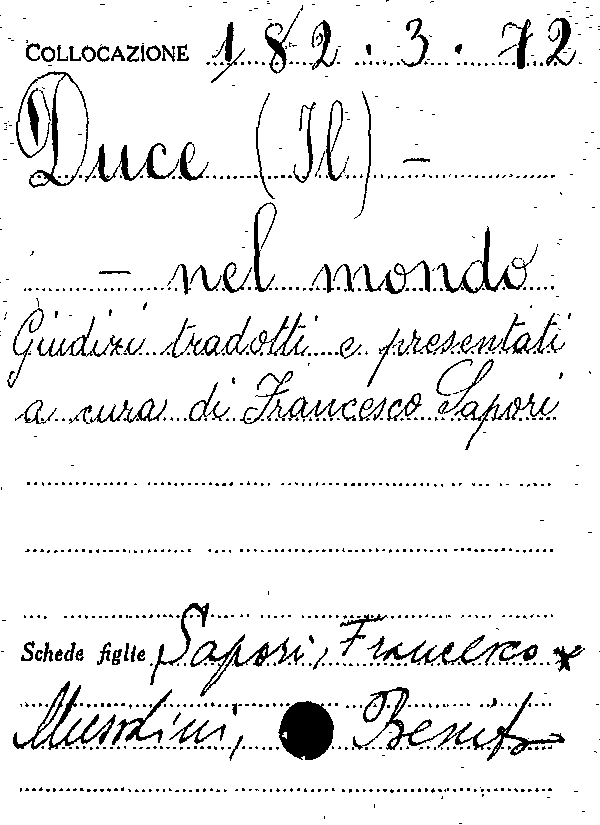 COLLOCAZIONE 182.3.72
Duce (Il) -
- nel mondo
Giudizi tradotti e presentati
a cura di Francesco Sapori
Schede figlie Sapori, Francesco *
Mussolini, Benito